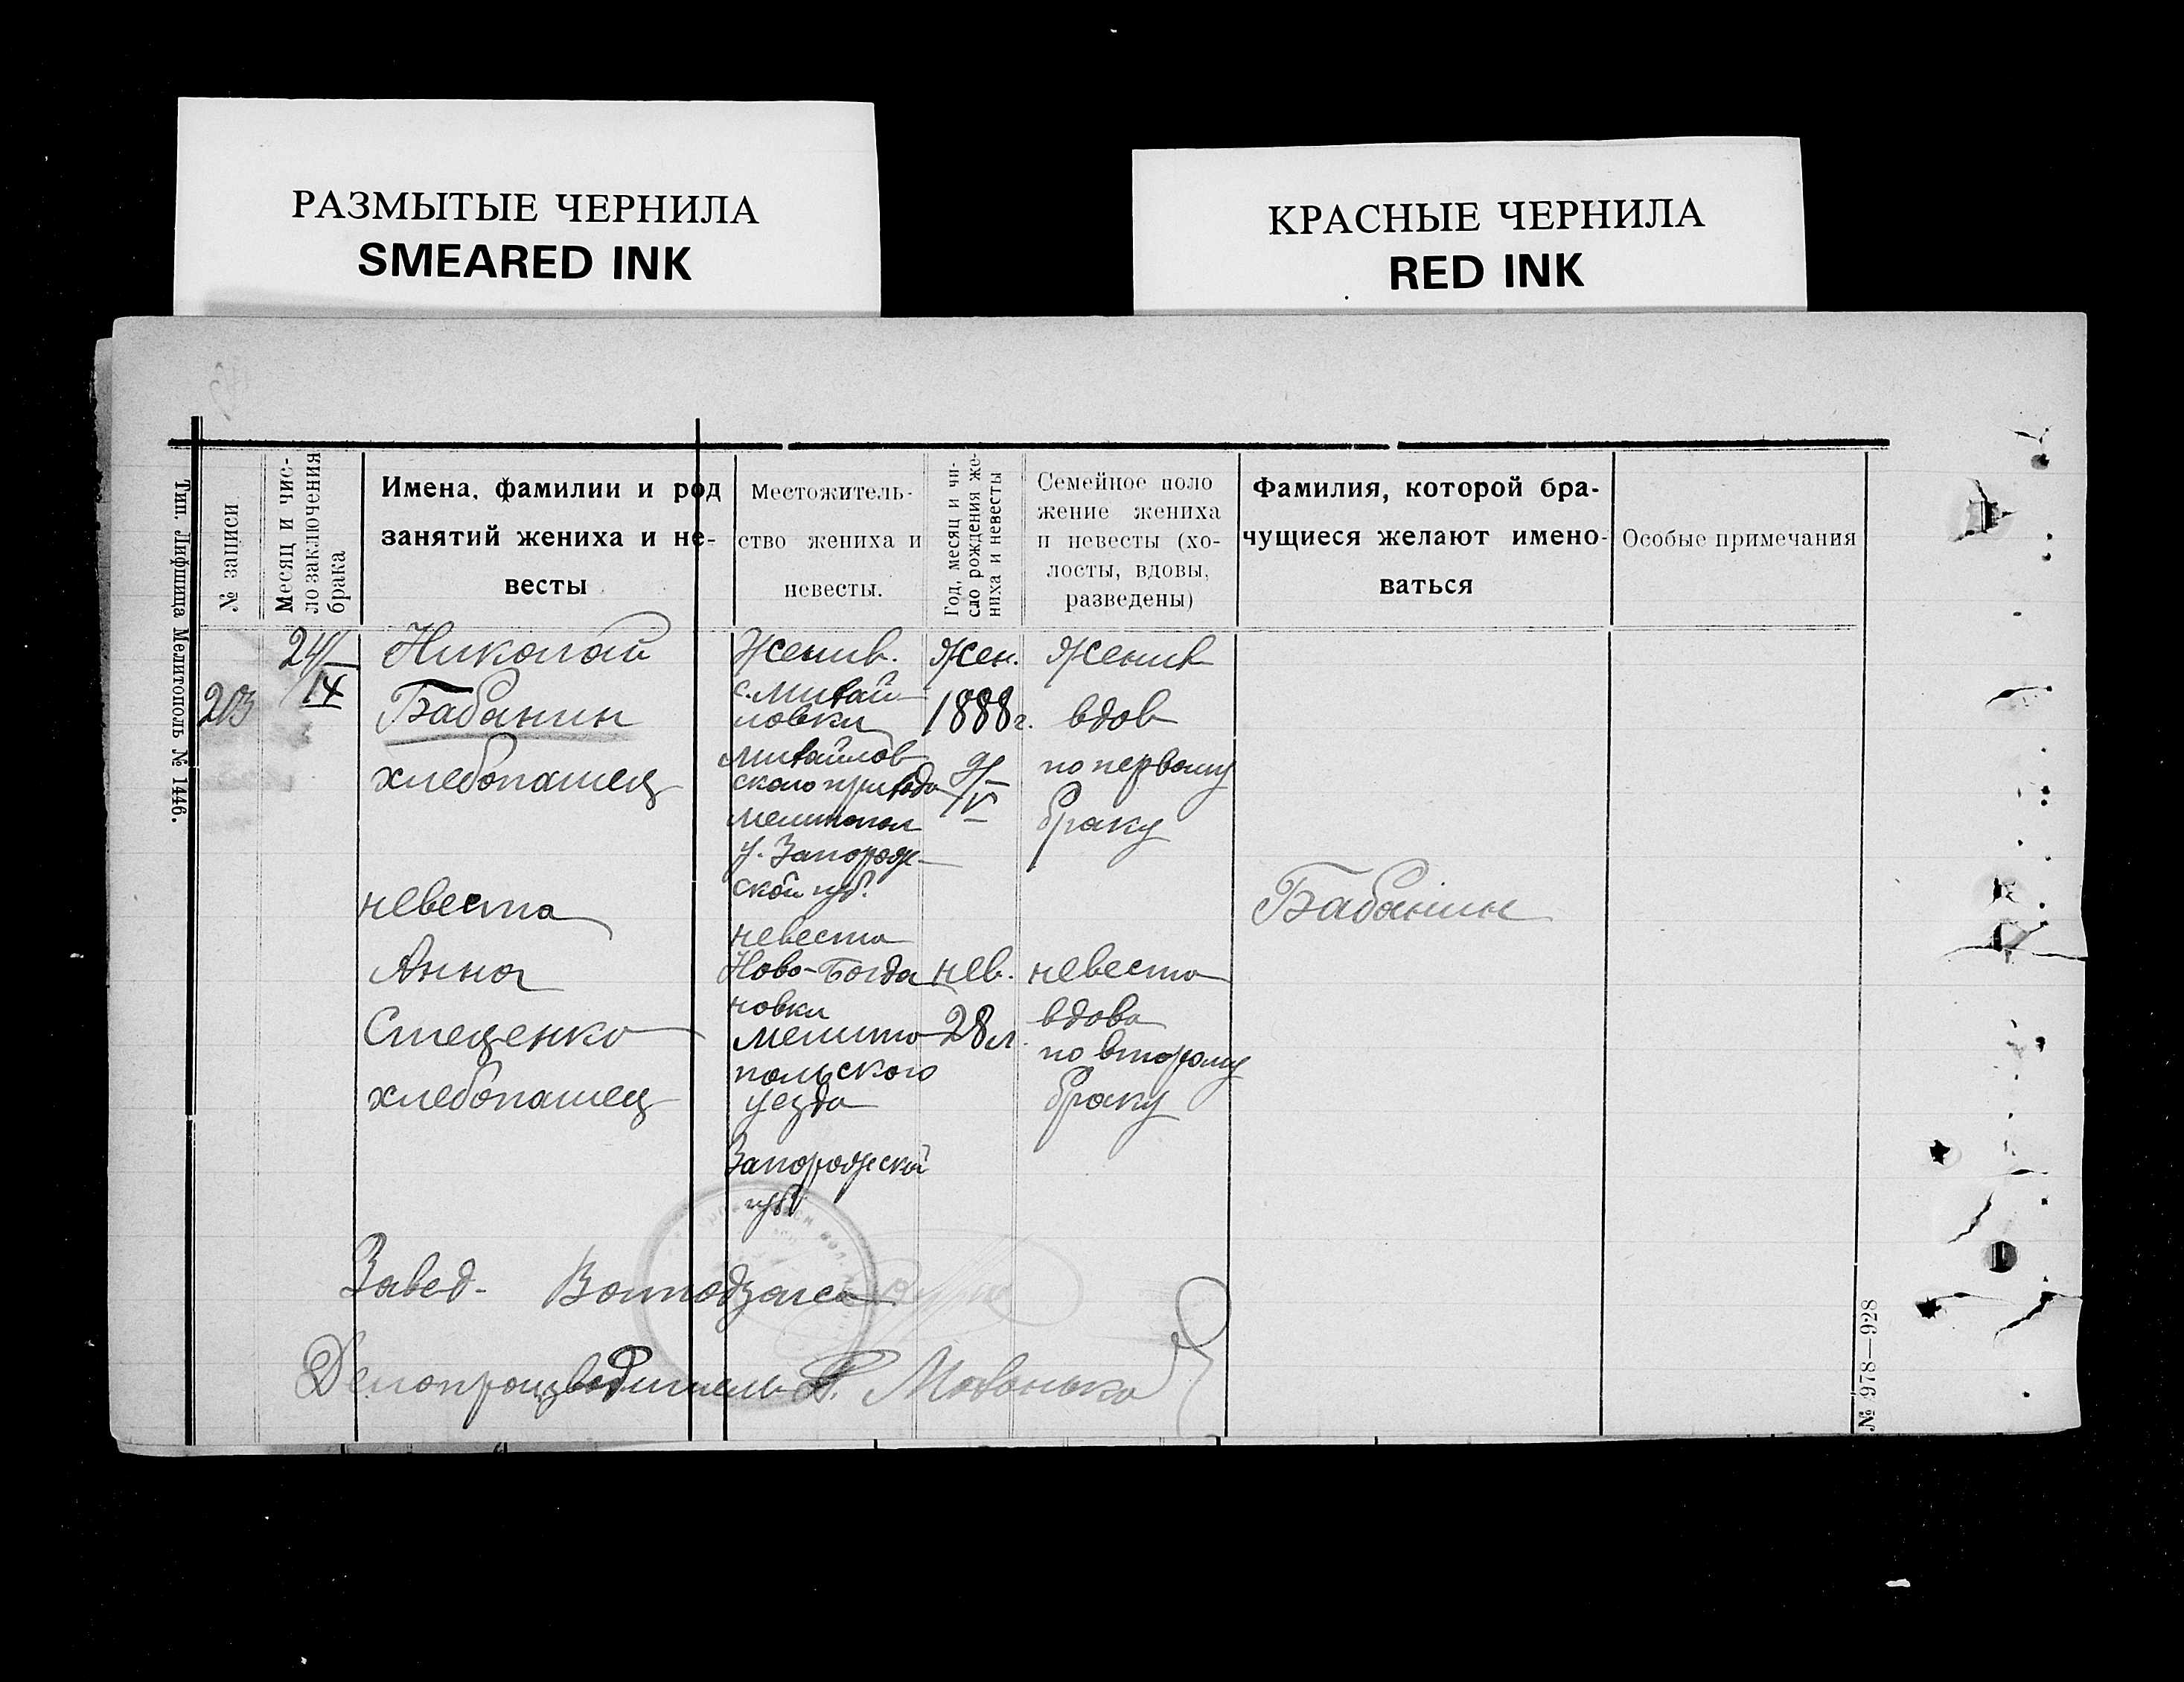 РАЗМЫТЫЕ ЧЕРНИЛА
SMEARED INK
КРАСНЫЕ ЧЕРНИЛА
RED INK
Тип. Лифшица Мелитополь № 1446.
№ записи
Месяц и чис-
ло заключения
брака
Имена, фамилии и род
занятий жениха и не-
весты
Местожитель-
ство жениха и
невесты.
Год, месяц и чи-
сло рождения же-
ниха и невесты
Семейное поло
жение жениха
и невесты (хо-
лосты, вдовы,
разведены)
Фамилия, которой бра-
чущиеся желают имено-
ваться
Особые примечания
203
24/IX
Николай
Бабанин
хлебопашец
невеста
Анна
Стеценко
хлебопашец
Жених.
с. Михай-
ловки
Михайлов
ского прихода
Мелитопол
у. Запорож-
ской губ.
невеста
Ново-Богда
новки
Мелито
польского
уезда
Запорожской
губ
Жен.
1888 г.
9/V
нев.
28 л.
Жених
вдов
по первому
браку
невеста
вдова
по второму
браку
Бабанин
Завед. Волподзагса
Делопроизводитель
№ 978—928